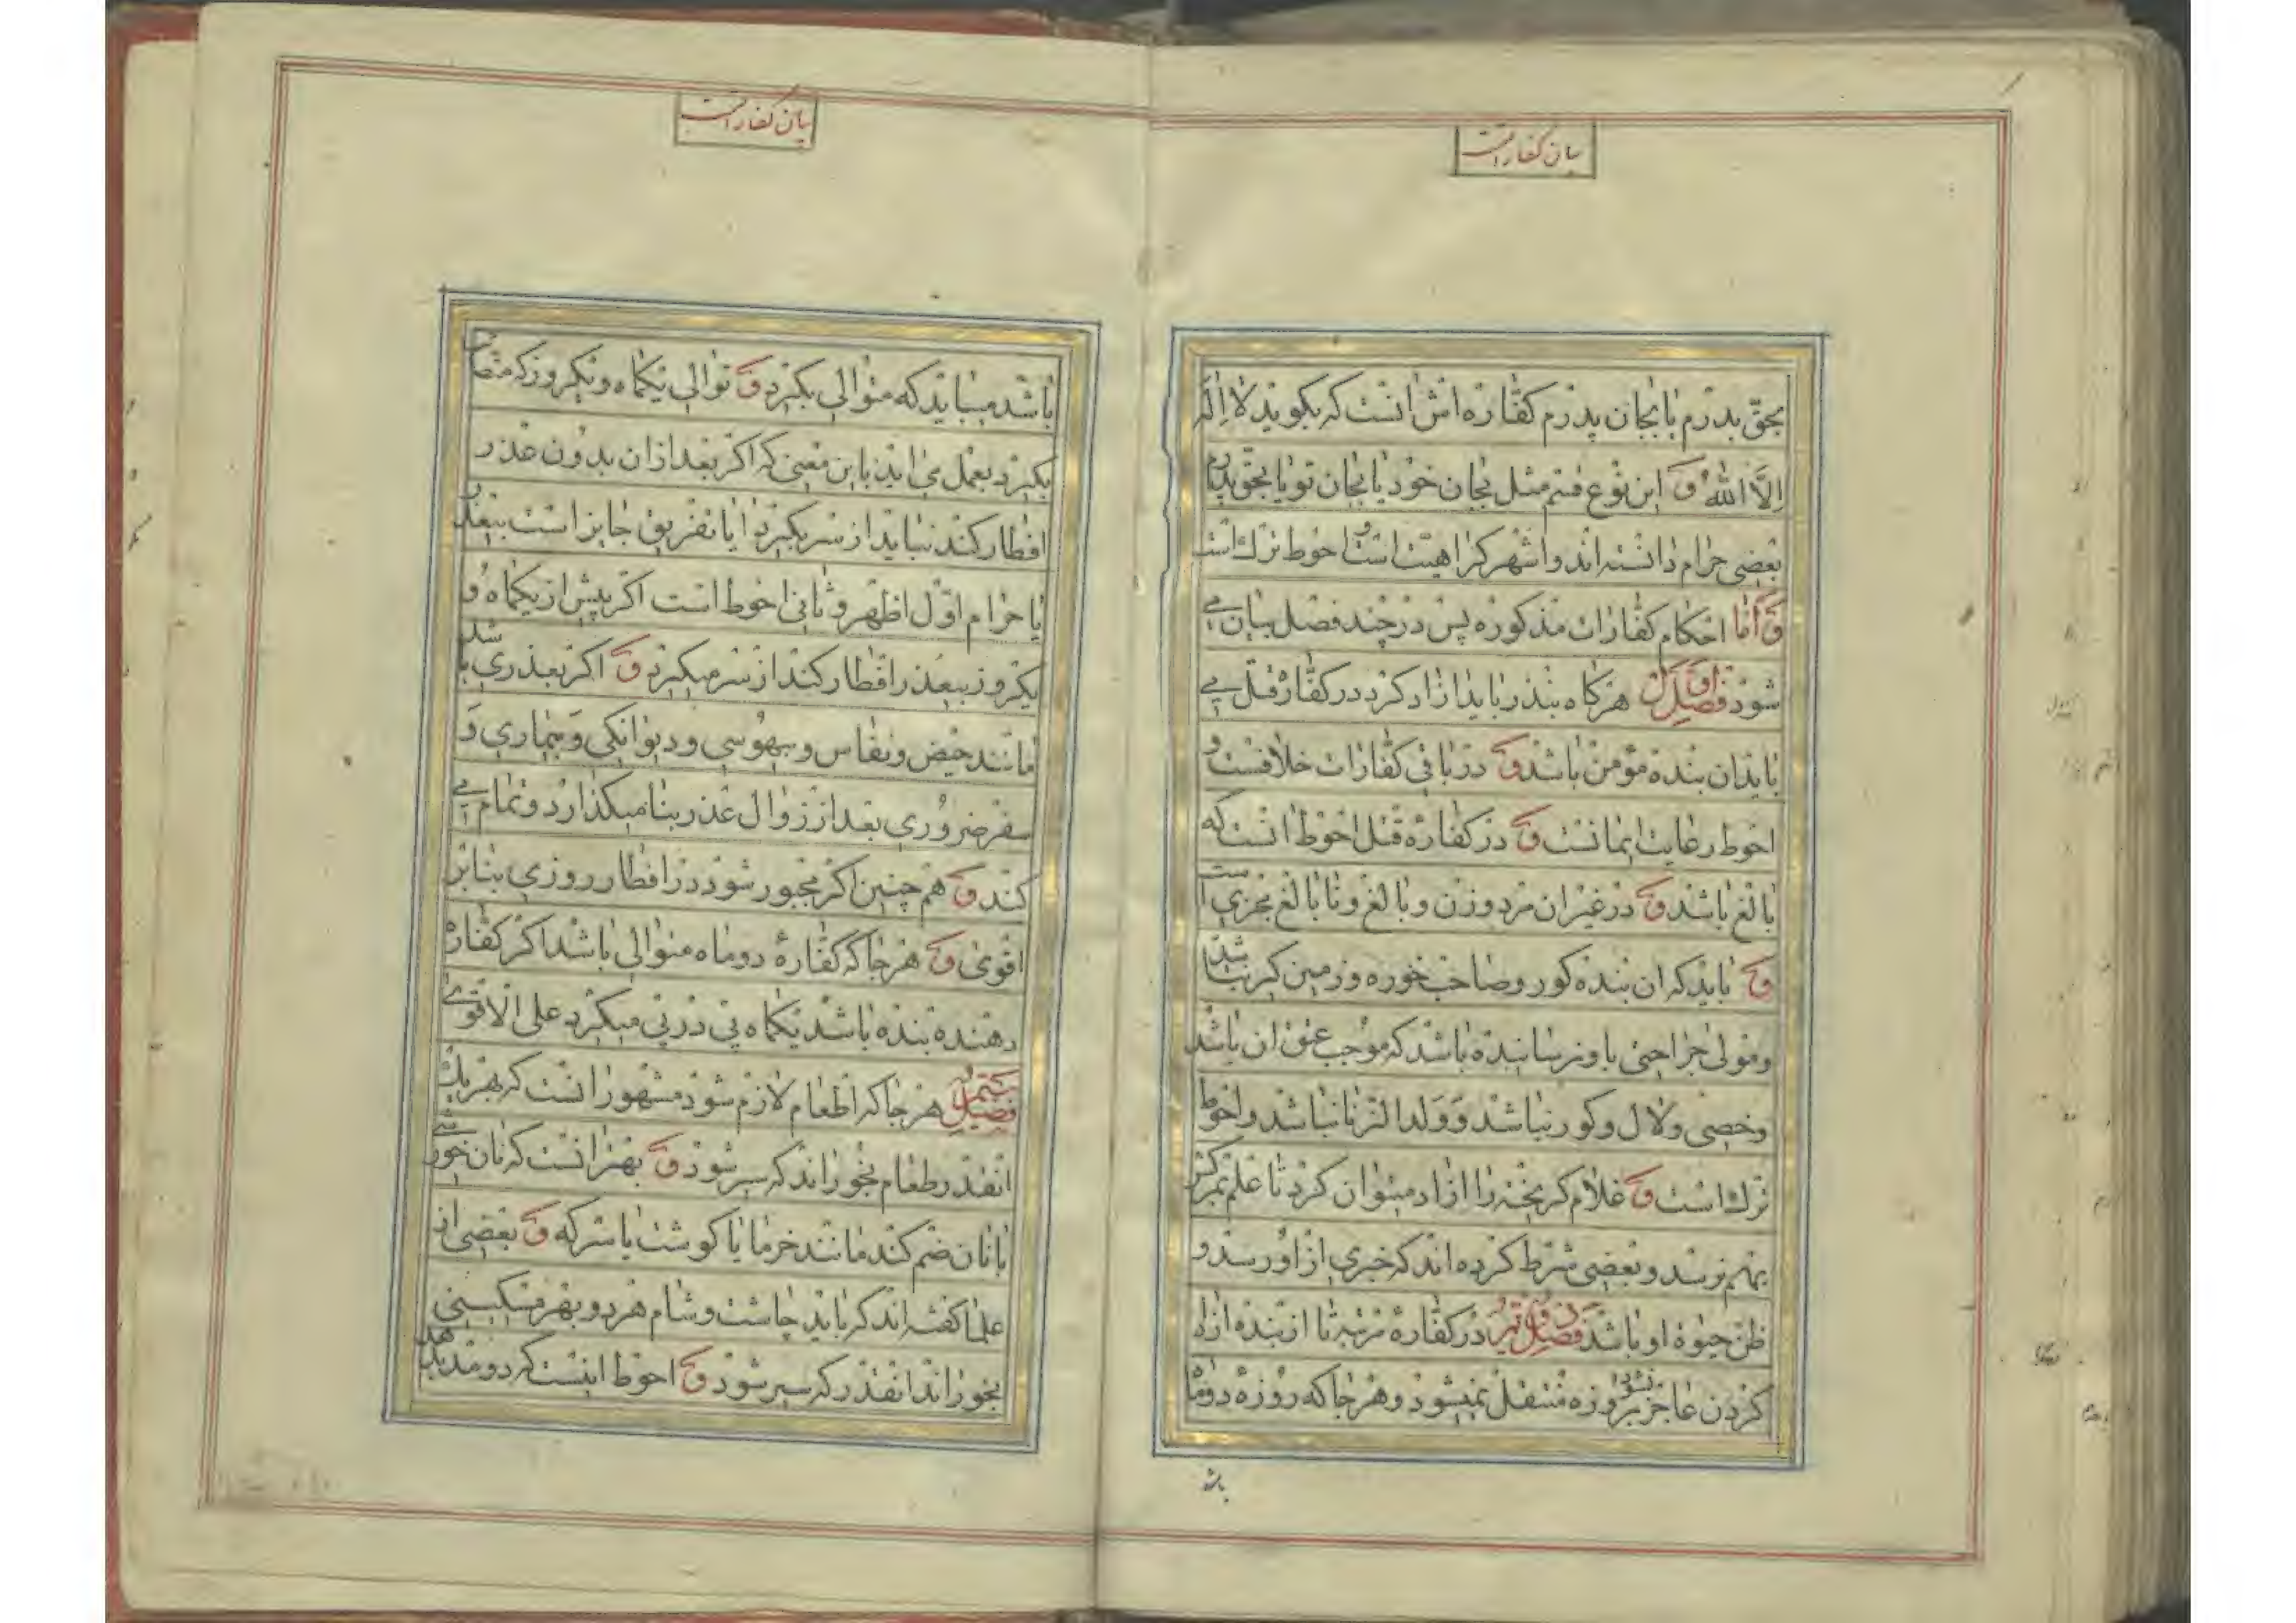 بیان کفارات
بحق پدرم یا بجان پدرم کفاره اش انست که بکوید لا اله
الا الله و این نوع قسم مثل بجان خود یا بجان تو یا بحق پدرم
بعضی حرام دانسته اند و اشهر کراهیت است و احوط ترک است
و اما احکام کفارات مذکوره پس در چند فصل بیان می
شود فصل اول هرکاه بنده را باید ازاد کرد در کفاره قتل می
باید ان بنده مؤمن باشد و در باقی کفارات خلافست و
احوط رعایت ایمانست و در کفاره قتل احوط انست که
بالغ باشد و در غیر ان مرد و زن و بالغ و نابالغ مجزی است
و باید که ان بنده کور و صاحب خوره و زمین کیر نباشد
و مولی جراحتی باو نرسانیده باشد که موجب عتق ان باشد
و خصی و لال و کور نباشد و ولد الزنا نباشد و احوط
ترک است و غلام کریخته را ازاد میتوان کرد تا علم بمرکش
بهم نرسد و بعضی شرط کرده اند که خبری از او رسد و
ظن حیوة او باشد فصل دویم در کفاره مرتبه تا از بنده ازاد
کردن عاجز نشود بروزه منتقل نمیشود و هر جا که روزه دو ماه
باشد
بیان کفارات
باشد میباید که متوالی بکیرد و توالی بیکماه و یکروز که متصل
بکیرد بعمل می اید باین معنی که اکر بعد از ان بدون عذر
افطار کند نباید از سر بکیرد ایا تفریق جایز است بیعذر
یا حرام اول اظهر و ثانی احوط است اکر پیش از یکماه و
یکروز بیعذر افطار کند از سر میکیرد و اکر بعذری باشد
مانند حیض و نفاس و بیهوشی و دیوانکی و بیماری و
سفر ضروری بعد از زوال عذر بنا میکذارد و تمام می
کند و هم چنین اکر مجبور شود در افطار روزی بنا بر
اقوی و هر جا که کفاره دو ماه متوالی باشد اکر کفاره
دهنده بنده باشد یکماه پی در پی میکیرد علی الاقوی
فصل سیم هر جا که اطعام لازم شود مشهور انست که بهر یک
انقدر طعام بخوراند که سیر شود و بهتر انست که نان خورشی
با نان ضم کند مانند خرما یا کوشت یا سرکه و بعضی از
علما کفته اند که باید چاشت و شام هر دو بهر مسکینی
بخوراند انقدر که سیر شود و احوط اینست که دو مد بدهد